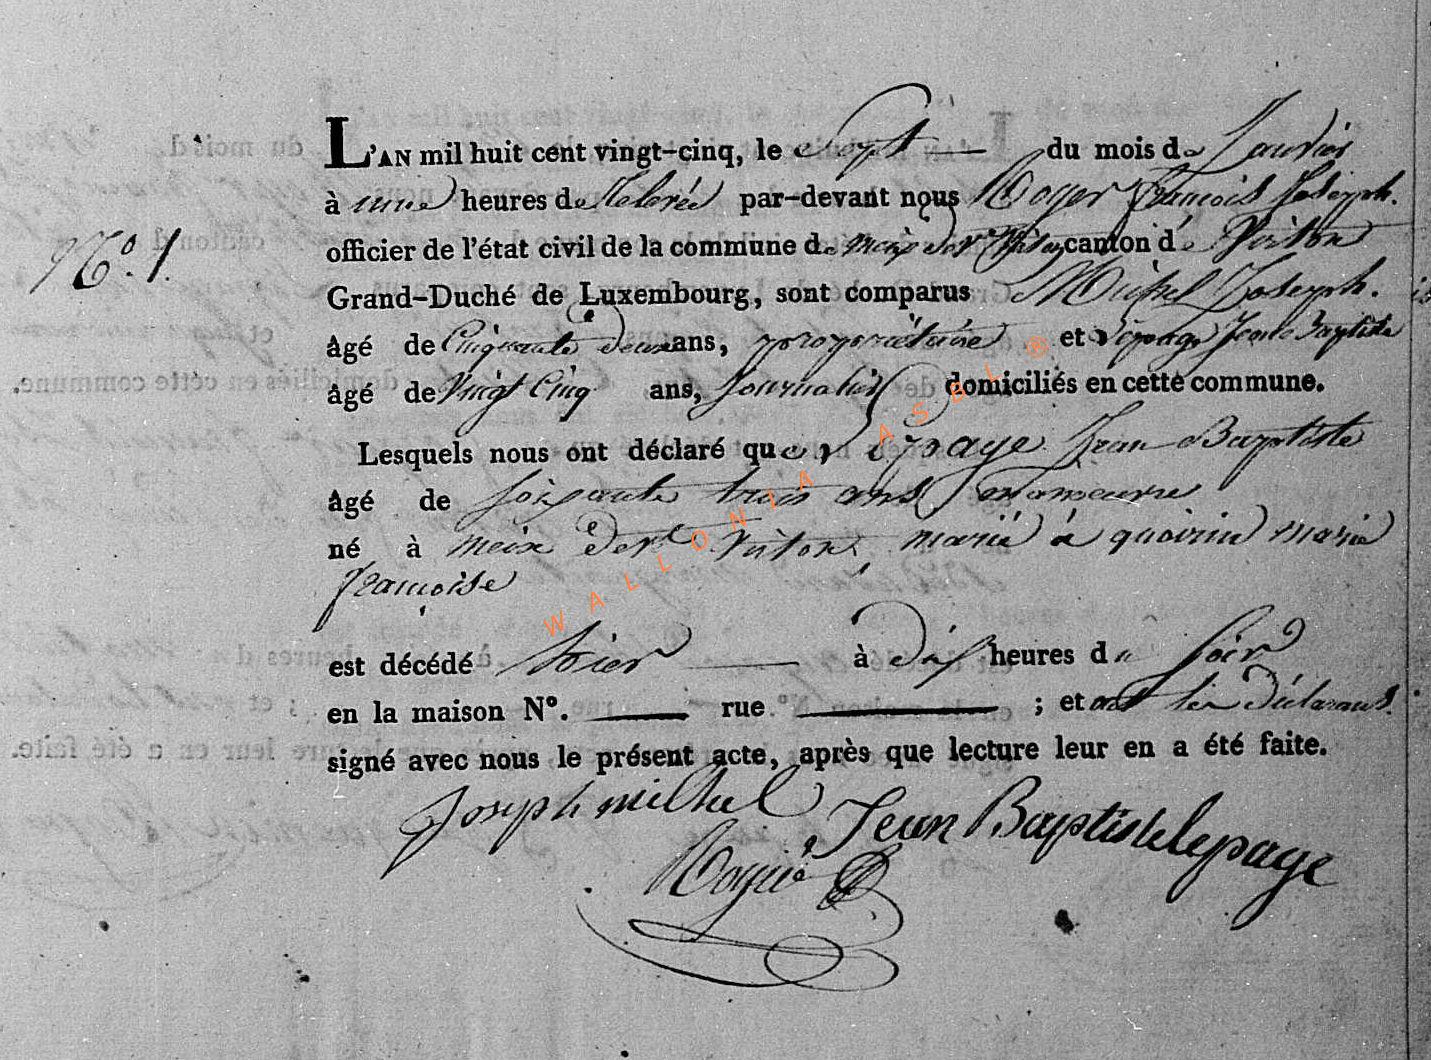 L'AN mil huit cent vingt-cinq, le Sept du mois de Janvier
à une heures de relevée par-devant nous François Joseph.
N.° 1.
officier de l'état civil de la commune de meix devt Virton canton de Virton
Grand-Duché de Luxembourg, sont comparus Michel Joseph.
âgé de Cinquante deux ans, propriétaire et Lepage Jean Baptiste
âgé de Vingt Cinq ans, Journalier domiciliés en cette commune.
Lesquels nous ont déclaré que Lepage Jean Baptiste
âgé de soixante trois ans manoeuvre
né à meix devt Virton, marié à quoirin marie
françoise
est décédé hier à dix heures du soir
en la maison N°. rue ; et ont les déclarans.
signé avec nous le présent acte, après que lecture leur en a été faite.
Joseph michel
Jean Baptiste lepage
WALLONIA ASBL ®